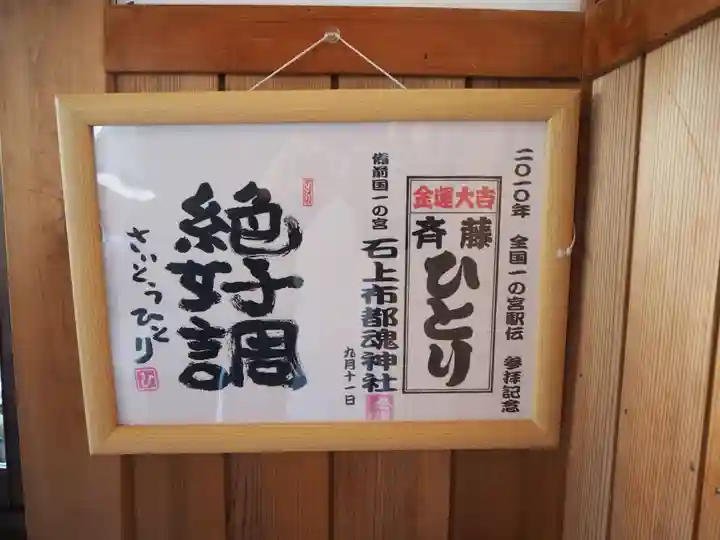 二〇一〇年 全国一の宮駅伝 参拝記念
金運大吉
斉藤
ひとり
備前国一の宮
石上布都魂神社
九月十一日
絶好調
さいとうひとり